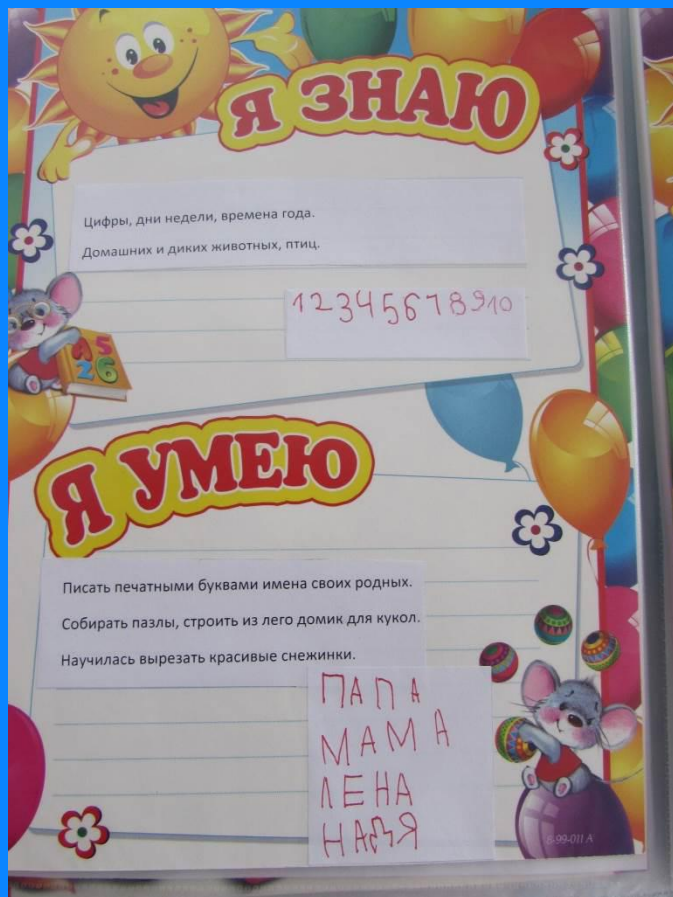 Я ЗНАЮ
Цифры, дни недели, времена года.
Домашних и диких животных, птиц.
1 2 3 4 5 6 7 8 9 10
А 5
2 6
Я УМЕЮ
Писать печатными буквами имена своих родных.
Собирать пазлы, строить из лего домик для кукол.
Научилась вырезать красивые снежинки.
ПАПА
МАМА
ЛЕНА
НАДЯ
8-99-011 А